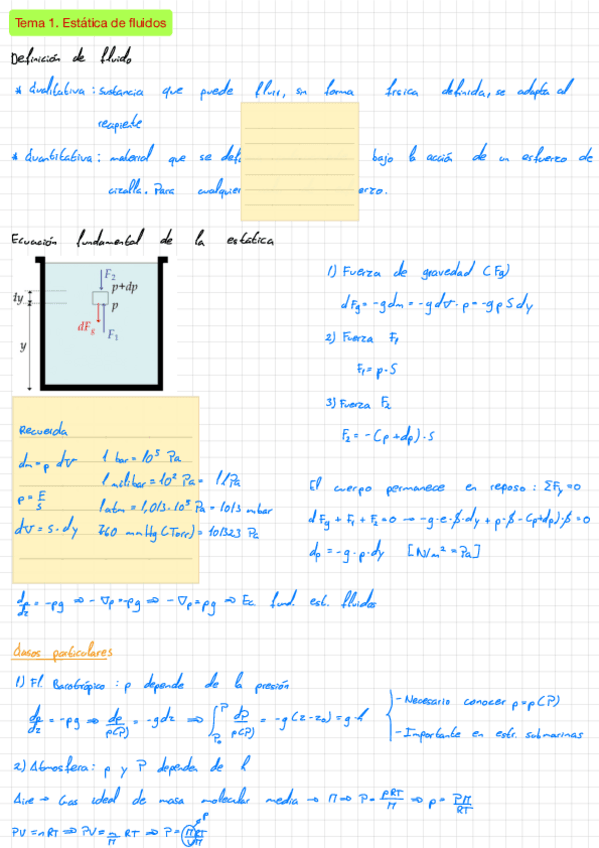 Tema 1. Estática de fluidos
Definición de fluido
* Qualitativa : sustancia que puede fluir, sin forma física definida, se adapta al
recipiente
* Quantitativa : material que se bajo la acción de un esfuerzo de
cizalla. Para
Ecuación fundamental de la estática
F₂
p+dp
dy
p
dFg
F₁
y
1) Fuerza de gravedad (Fg)
dFg = -g dm = -g dV · ρ = -g ρ S dy
2) Fuerza F₁
F₁ = p · S
3) Fuerza F₂
F₂ = -(p + dp) · S
Recuerda
dm = ρ dV
1 bar = 10⁵ Pa
1 milibar = 10² Pa = 1 hPa
p = F/S
1 atm = 1,013 · 10⁵ Pa = 1013 mbar
dV = S · dy
760 mmHg (Torr) = 101323 Pa
El cuerpo permanece en reposo : ΣFy = 0
dFg + F₁ + F₂ = 0 → -g · ρ · S · dy + p · S - (p+dp) · S = 0
dp = -g · ρ · dy [N/m² = Pa]
dp/dz = -ρg ⇒ -∇p = -ρg ⇒ -∇p = ρg ⇒ Ec. fund. est. fluidos
Casos particulares
1) Fl. Barotrópico : ρ depende de la presión
dp/dz = -ρg ⇒ dp/ρ(P) = -g dz ⇒ ∫ₚ₀ᴾ dP/ρ(P) = -g (z - z₀) = g · h
- Necesario conocer ρ = ρ(P)
- Importante en estr. submarinas
2) Atmosfera : ρ y P dependen de h
Aire → Gas ideal de masa molecular media → M ⇒ P = ρRT/M ⇒ ρ = PM/RT
PV = nRT ⇒ PV = m/M RT ⇒ P = m RT/V M
ρ